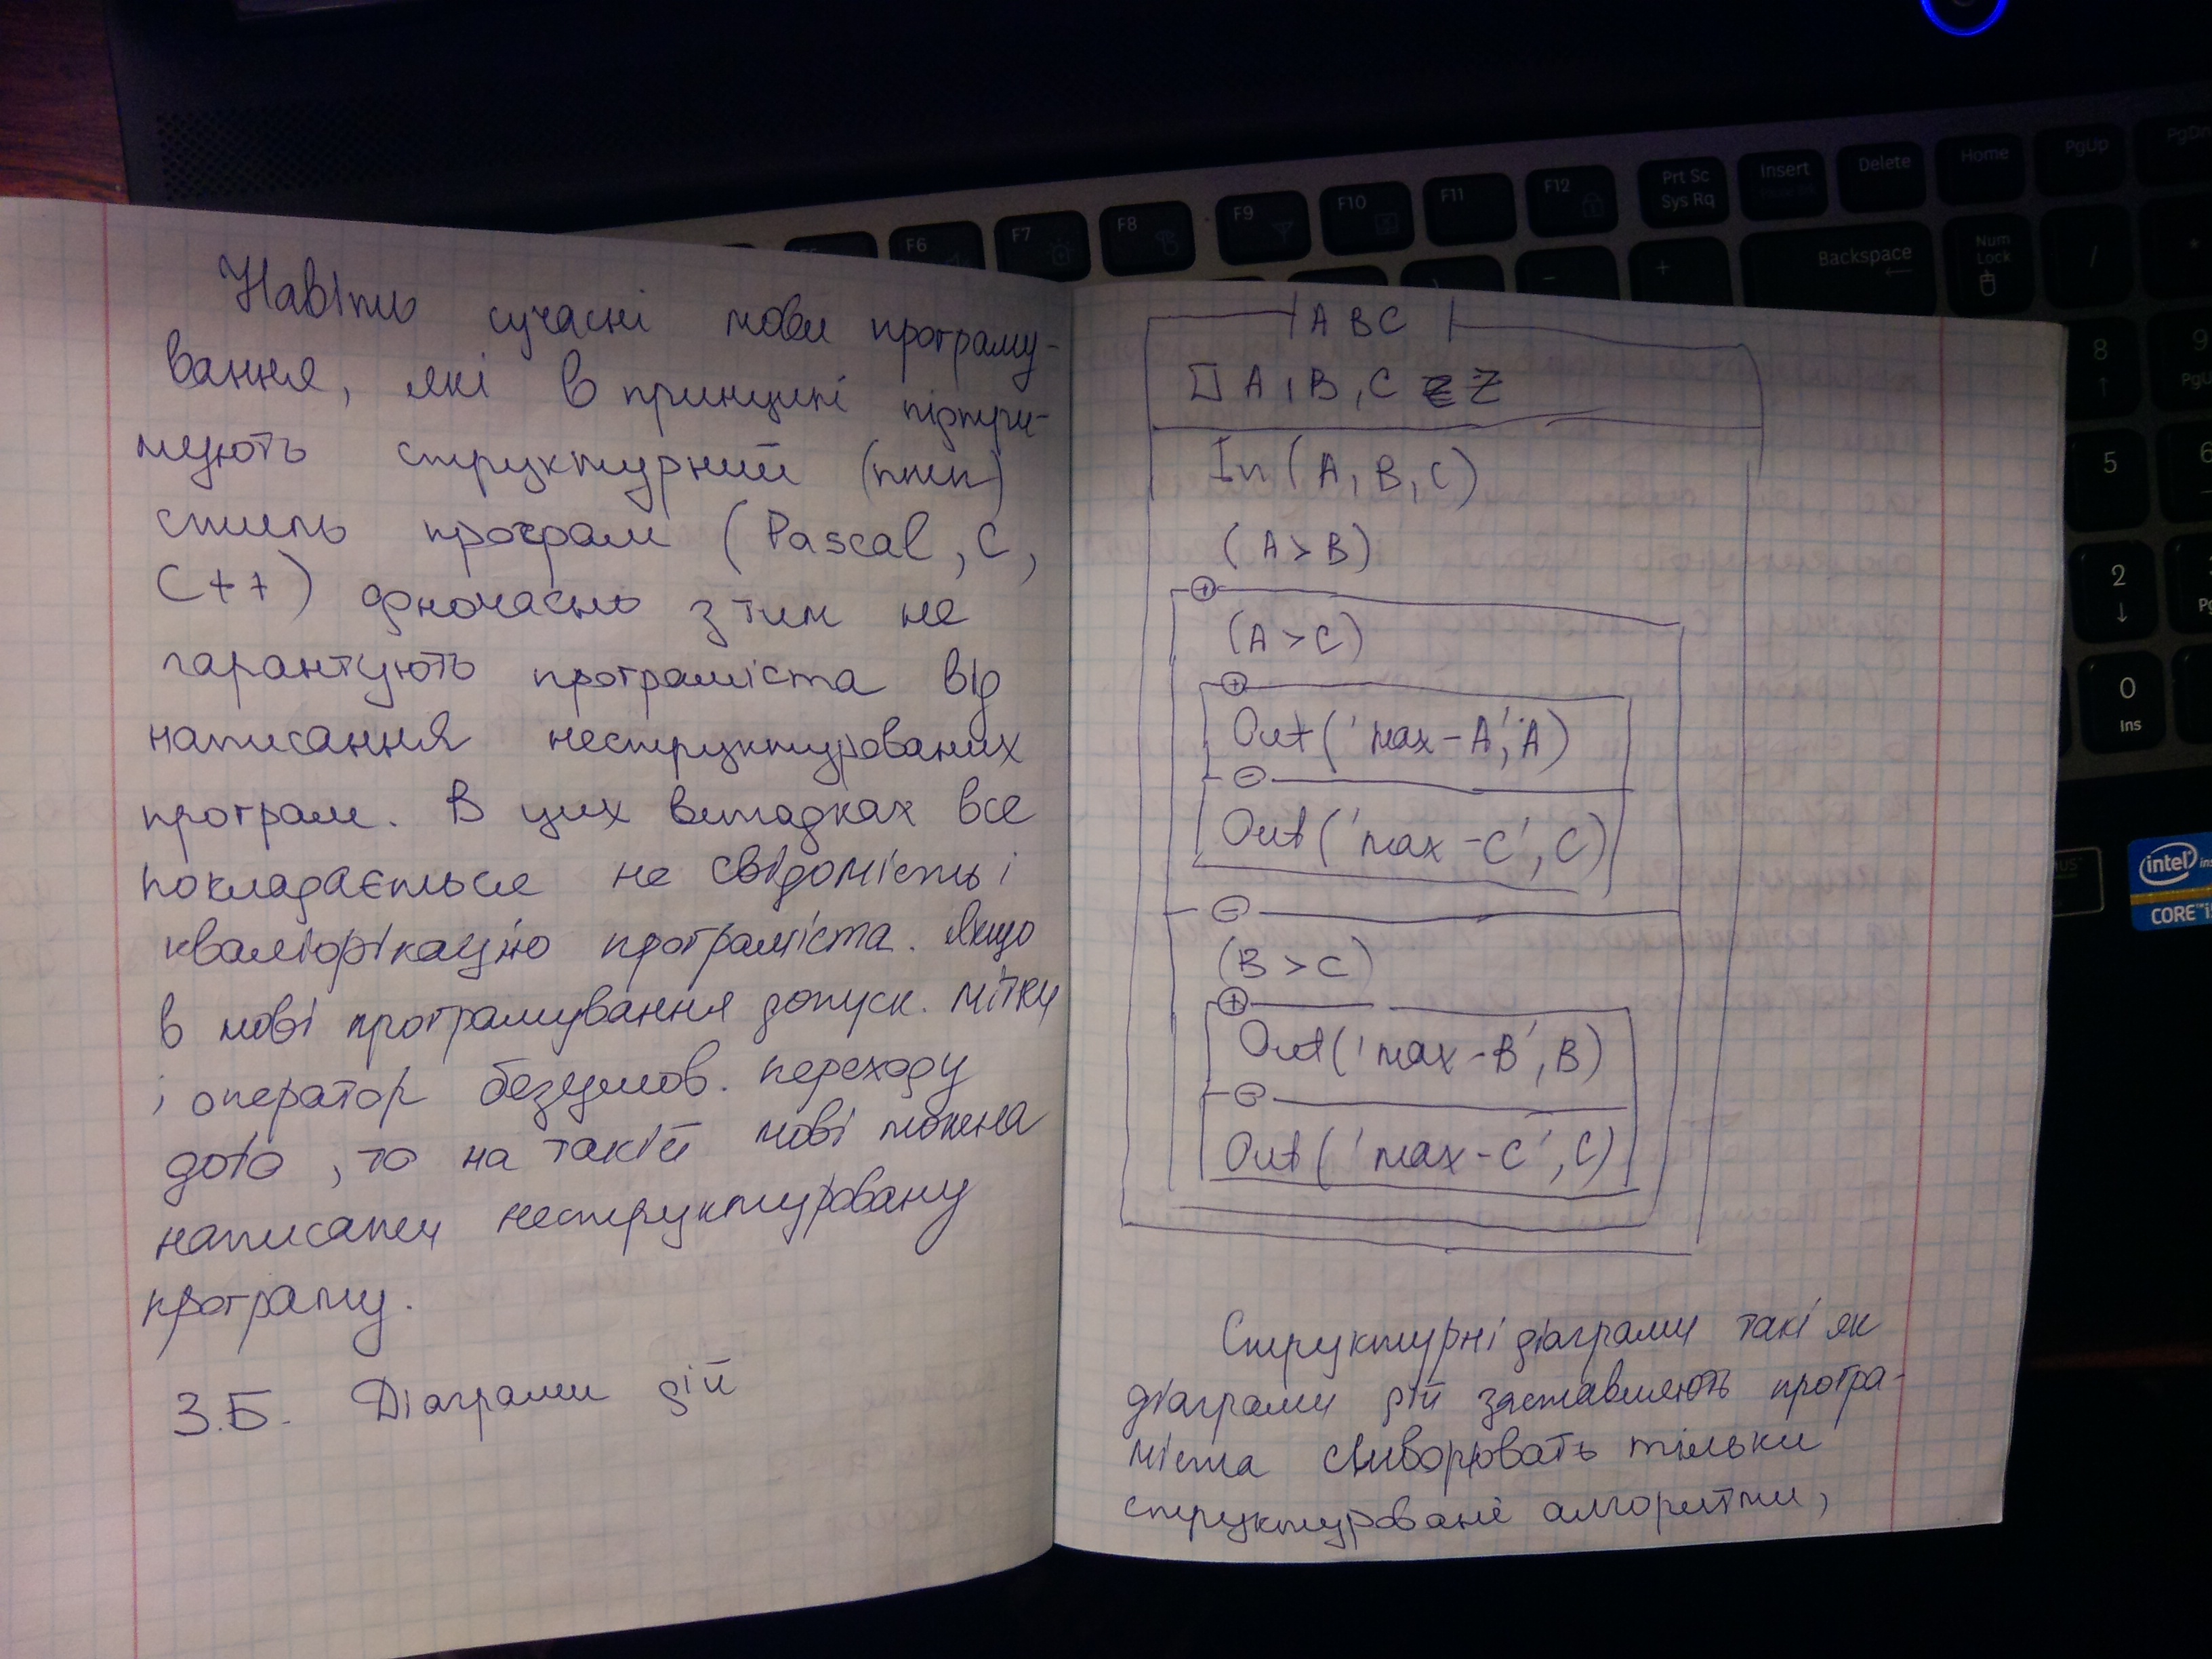 Навіть сучасні мови програму-
вання, які в принципі підтри-
мують структурний (ппп)
стиль програм (Pascal, C,
C++) одночасно з тим не
гарантують програміста від
написання неструктурованих
програм. В цих випадках все
покладається на свідомість і
кваліфікацію програміста. Якщо
в мові програмування допуск. мітки
і оператор безумов. переходу
goto, то на такій мові можна
написати неструктуровану
програму.
3.Б. Діаграми дій
ABC
A, B, C Z
In (A, B, C)
(A > B)
+
(A > C)
+
Out ('max-A', A)
-
Out ('max-C', C)
-
(B > C)
+
Out ('max-B', B)
-
Out ('max-C', C)
Структурні діаграми такі як
діаграми дій заставляють програ-
міста створювать тільки
структуровані алгоритми,
F6
F7
F8
F9
F10
F11
F12
Prt Sc
Sys Rq
Insert
Delete
Home
PgUp
PgDn
Backspace
Num
Lock
/
*
-
+
8
9
PgUp
5
6
2
0
Ins
intel
CORE i5